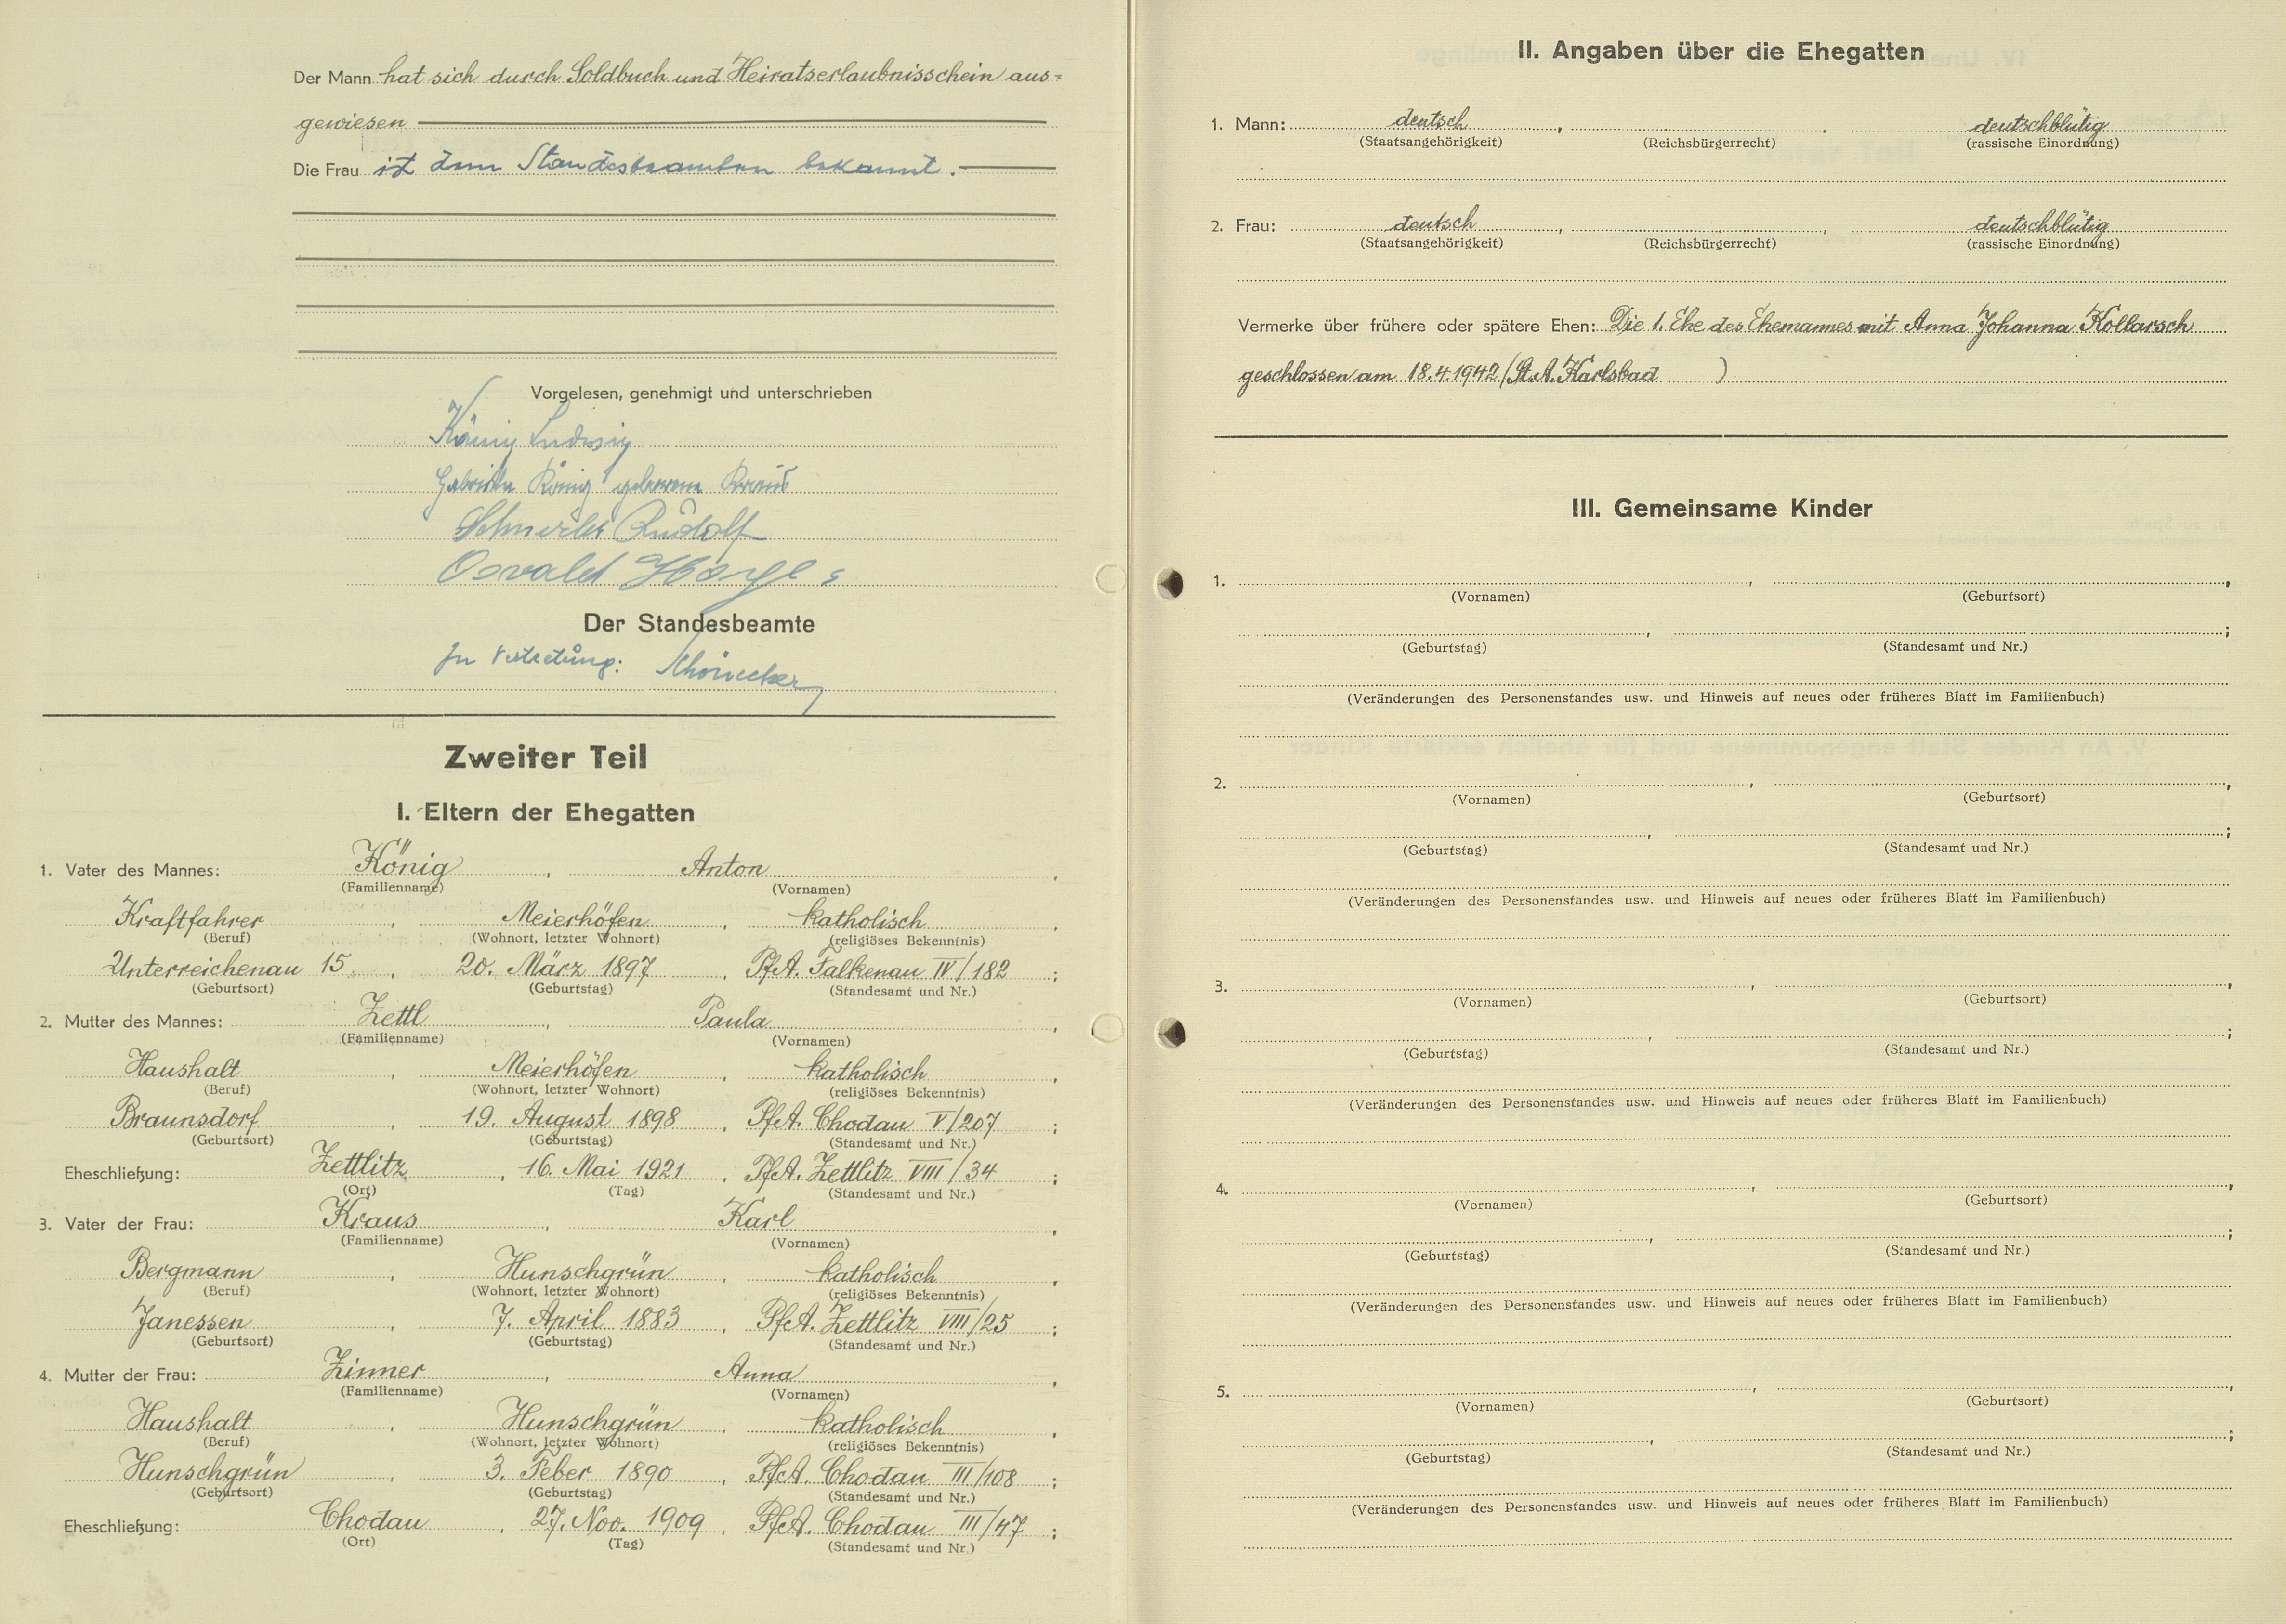 Der Mann hat sich durch Soldbuch und Heiratserlaubnisschein aus=
gewiesen
Die Frau ist dem Standesbeamten bekannt.
Vorgelesen, genehmigt und unterschrieben
König Ludwig
König geborene Kraus
Rudolf
Oswald
Der Standesbeamte
In Vertretung:
Zweiter Teil
I. Eltern der Ehegatten
1. Vater des Mannes: König, Anton,
(Familienname) (Vornamen)
Kraftfahrer, Meierhöfen, katholisch,
(Beruf) (Wohnort, letzter Wohnort) (religiöses Bekenntnis)
Unterreichenau 15, 20. März 1897, PfA. Falkenau IV/182;
(Geburtsort) (Geburtstag) (Standesamt und Nr.)
2. Mutter des Mannes: Zettl, Paula,
(Familienname) (Vornamen)
Haushalt, Meierhöfen, katholisch,
(Beruf) (Wohnort, letzter Wohnort) (religiöses Bekenntnis)
Braunsdorf, 19. August 1898, PfA. Chodau V/207;
(Geburtsort) (Geburtstag) (Standesamt und Nr.)
Eheschließung: Zettlitz, 16. Mai 1921, PfA. Zettlitz VIII/34;
(Ort) (Tag) (Standesamt und Nr.)
3. Vater der Frau: Kraus, Karl,
(Familienname) (Vornamen)
Bergmann, Hunschgrün, katholisch,
(Beruf) (Wohnort, letzter Wohnort) (religiöses Bekenntnis)
Janessen, 7. April 1883, PfA. Zettlitz VIII/25;
(Geburtsort) (Geburtstag) (Standesamt und Nr.)
4. Mutter der Frau: Zinner, Anna,
(Familienname) (Vornamen)
Haushalt, Hunschgrün, katholisch,
(Beruf) (Wohnort, letzter Wohnort) (religiöses Bekenntnis)
Hunschgrün, 3. Feber 1890, PfA. Chodau III/108;
(Geburtsort) (Geburtstag) (Standesamt und Nr.)
Eheschließung: Chodau, 27. Nov. 1909, PfA. Chodau III/47;
(Ort) (Tag) (Standesamt und Nr.)
II. Angaben über die Ehegatten
1. Mann: deutsch, , deutschblütig
(Staatsangehörigkeit) (Reichsbürgerrecht) (rassische Einordnung)
2. Frau: deutsch, , deutschblütig
(Staatsangehörigkeit) (Reichsbürgerrecht) (rassische Einordnung)
Vermerke über frühere oder spätere Ehen: Die 1. Ehe des Ehemannes mit Anna Johanna Kollarsch
geschlossen am 18.4.1942 (St.A. Karlsbad )
III. Gemeinsame Kinder
1. , ,
(Vornamen) (Geburtsort)
, ;
(Geburtstag) (Standesamt und Nr.)
(Veränderungen des Personenstandes usw. und Hinweis auf neues oder früheres Blatt im Familienbuch)
2. , ,
(Vornamen) (Geburtsort)
, ;
(Geburtstag) (Standesamt und Nr.)
(Veränderungen des Personenstandes usw. und Hinweis auf neues oder früheres Blatt im Familienbuch)
3. , ,
(Vornamen) (Geburtsort)
, ;
(Geburtstag) (Standesamt und Nr.)
(Veränderungen des Personenstandes usw. und Hinweis auf neues oder früheres Blatt im Familienbuch)
4. , ,
(Vornamen) (Geburtsort)
, ;
(Geburtstag) (Standesamt und Nr.)
(Veränderungen des Personenstandes usw. und Hinweis auf neues oder früheres Blatt im Familienbuch)
5. , ,
(Vornamen) (Geburtsort)
, ;
(Geburtstag) (Standesamt und Nr.)
(Veränderungen des Personenstandes usw. und Hinweis auf neues oder früheres Blatt im Familienbuch)